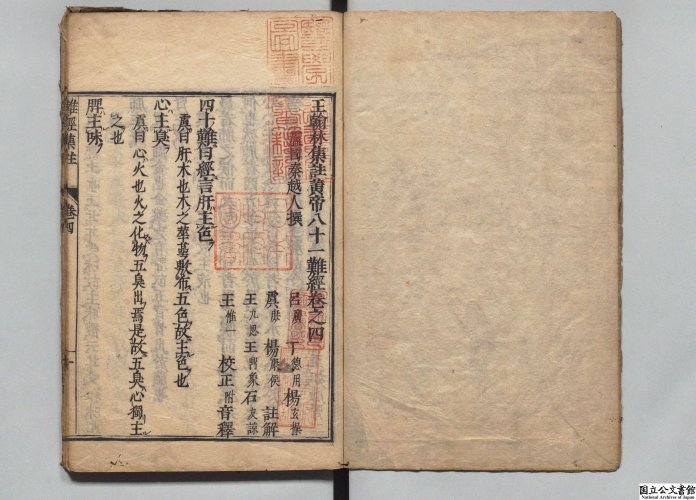 王翰林集註黃帝八十一難經卷之四
盧國秦越人撰
呂廣 丁德用 楊玄操
虞庶 楊康侯 註解
王九思 王鼎象 石友諒
王惟一 校正附音釋
四十難曰經言肝主色
虞曰肝木也木之華萼敷布五色故主色也
心主臭
虞曰心火也火之化物五臭出焉是故五臭心獨主
之也
脾主味
難經集註 卷四
国立公文書館
National Archives of Japan